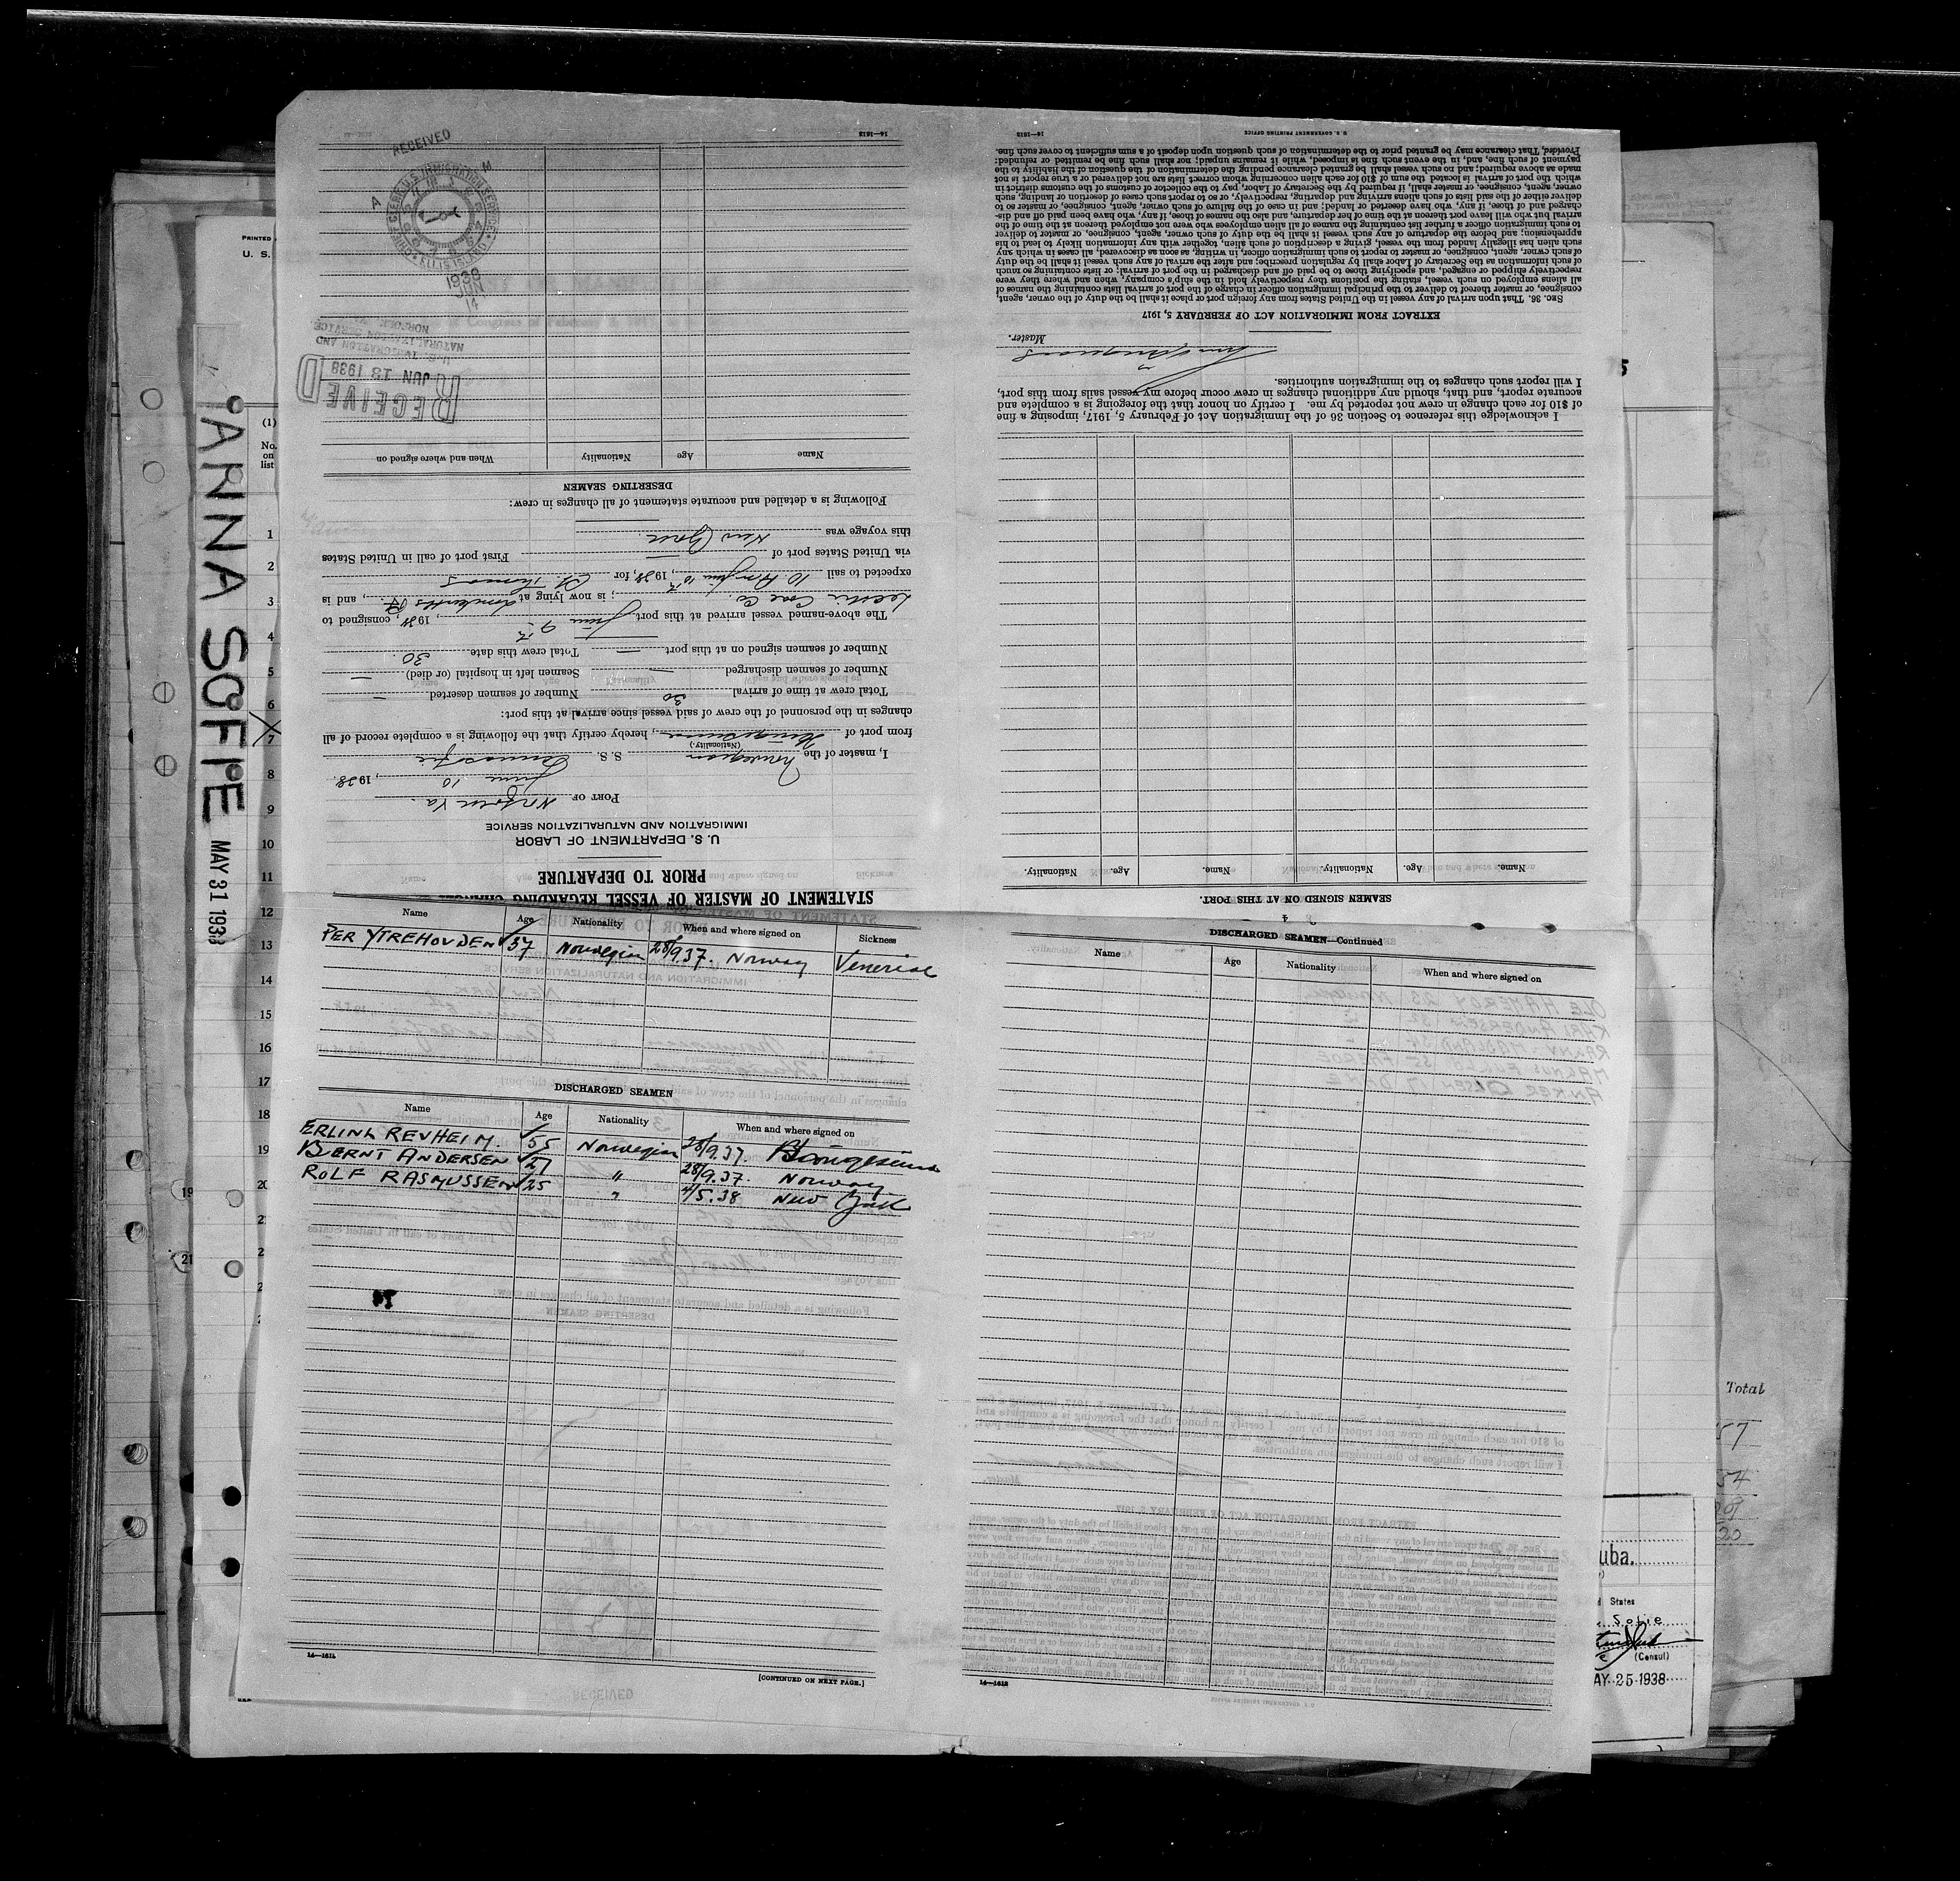 ANNA SOFIE MAY 31 1938
PRINTED
U. S.
(1)
No. on list
1
2
3
4
5
6
7
8
9
10
11
12
13
14
15
16
17
18
19
20
21
STATEMENT OF MASTER OF VESSEL REGARDING
PRIOR TO DEPARTURE
U. S. DEPARTMENT OF LABOR
IMMIGRATION AND NATURALIZATION SERVICE
PORT OF Norfolk Va.
June 10, 1938.
I, master of the Norwegian S. S. Annasofie
(Nationality)
from port of Haugesund, hereby certify that the following is a complete record of all
changes in the personnel of the crew of said vessel since arrival at this port:
Total crew at time of arrival 30 Number of seamen deserted —
Number of seamen discharged — Seamen left in hospital (or died) —
Number of seamen signed on at this port — Total crew this date 30
The above-named vessel arrived at this port June 9th, 1938, consigned to
Coal Co.; is now lying at Lamberts Pt., and is
expected to sail 10 PM June 10th, 1938, for St. Thomas
via United States port of — First port of call in United States
this voyage was New York.
Following is a detailed and accurate statement of all changes in crew:
DESERTING SEAMEN
Name Age Nationality When and where signed on
RECEIVED
JUN 13 1938
U.S. IMMIGRATION AND
NATURALIZATION SERVICE
NORFOLK
RECEIVED
U.S. IMMIGRATION SERVICE
ELLIS ISLAND
1938
JUN
14
14—1613
SEAMEN SIGNED ON AT THIS PORT.
Name. Age. Nationality. Name. Age. Nationality.
I acknowledge this reference to Section 36 of the Immigration Act of February 5, 1917, imposing a fine
of $10 for each change in crew not reported by me. I certify on honor that the foregoing is a complete and
accurate report, and that, should any additional changes in crew occur before my vessel sails from this port,
I will report such changes to the immigration authorities.
Master.
EXTRACT FROM IMMIGRATION ACT OF FEBRUARY 5, 1917
SEC. 36. That upon arrival of any vessel in the United States from any foreign port or place it shall be the duty of the owner, agent,
consignee, or master thereof to deliver to the principal immigration officer in charge of the port of arrival lists containing the names of
all aliens employed on such vessel, stating the positions they respectively hold in the ship's company, when and where they were
respectively shipped or engaged, and specifying those to be paid off and discharged in the port of arrival; or lists containing so much
of such information as the Secretary of Labor shall by regulation prescribe; and after the arrival of any such vessel it shall be the duty
of such owner, agent, consignee, or master to report to such immigration officer, in writing, as soon as discovered, all cases in which any
such alien has illegally landed from the vessel, giving a description of such alien, together with any information likely to lead to his
apprehension; and before the departure of any such vessel it shall be the duty of such owner, agent, consignee, or master to deliver
to such immigration officer a further list containing the names of all alien employees who were not employed thereon at the time of the
arrival but who will leave port thereon at the time of her departure, and also the names of those, if any, who have been paid off and dis-
charged and of those, if any, who have deserted or landed; and in case of the failure of such owner, agent, consignee, or master to
deliver either of the said lists of such aliens arriving and departing, respectively, or so to report such cases of desertion or landing, such
owner, agent, consignee, or master shall, if required by the Secretary of Labor, pay to the collector of customs of the customs district in
which the port of arrival is located the sum of $10 for each alien concerning whom correct lists are not delivered or a true report is not
made as above required; and no such vessel shall be granted clearance pending the determination of the question of the liability to the
payment of such fine, and, in the event such fine is imposed, while it remains unpaid; nor shall such fine be remitted or refunded:
Provided, That clearance may be granted prior to the determination of such question upon deposit of a sum sufficient to cover such fine.
U. S. GOVERNMENT PRINTING OFFICE
14—1613
Name Age Nationality When and where signed on Sickness
PER YTREHOVDEN 37 Norwegian 28/9.37. Norway Venerial
DISCHARGED SEAMEN
Name Age Nationality When and where signed on
ERLING REVHEIM. 55 Norwegian 28/9.37. Haugesund
BERNT ANDERSEN 27 " 28/9.37. Norway
ROLF RASMUSSEN 25 " 4/5.38 New York
14—1614
[CONTINUED ON NEXT PAGE.]
DISCHARGED SEAMEN—Continued
Name Age Nationality When and where signed on
14—1613
Total
57
54
20
uba.
States
Sofie
(Consul)
AY 25 1938